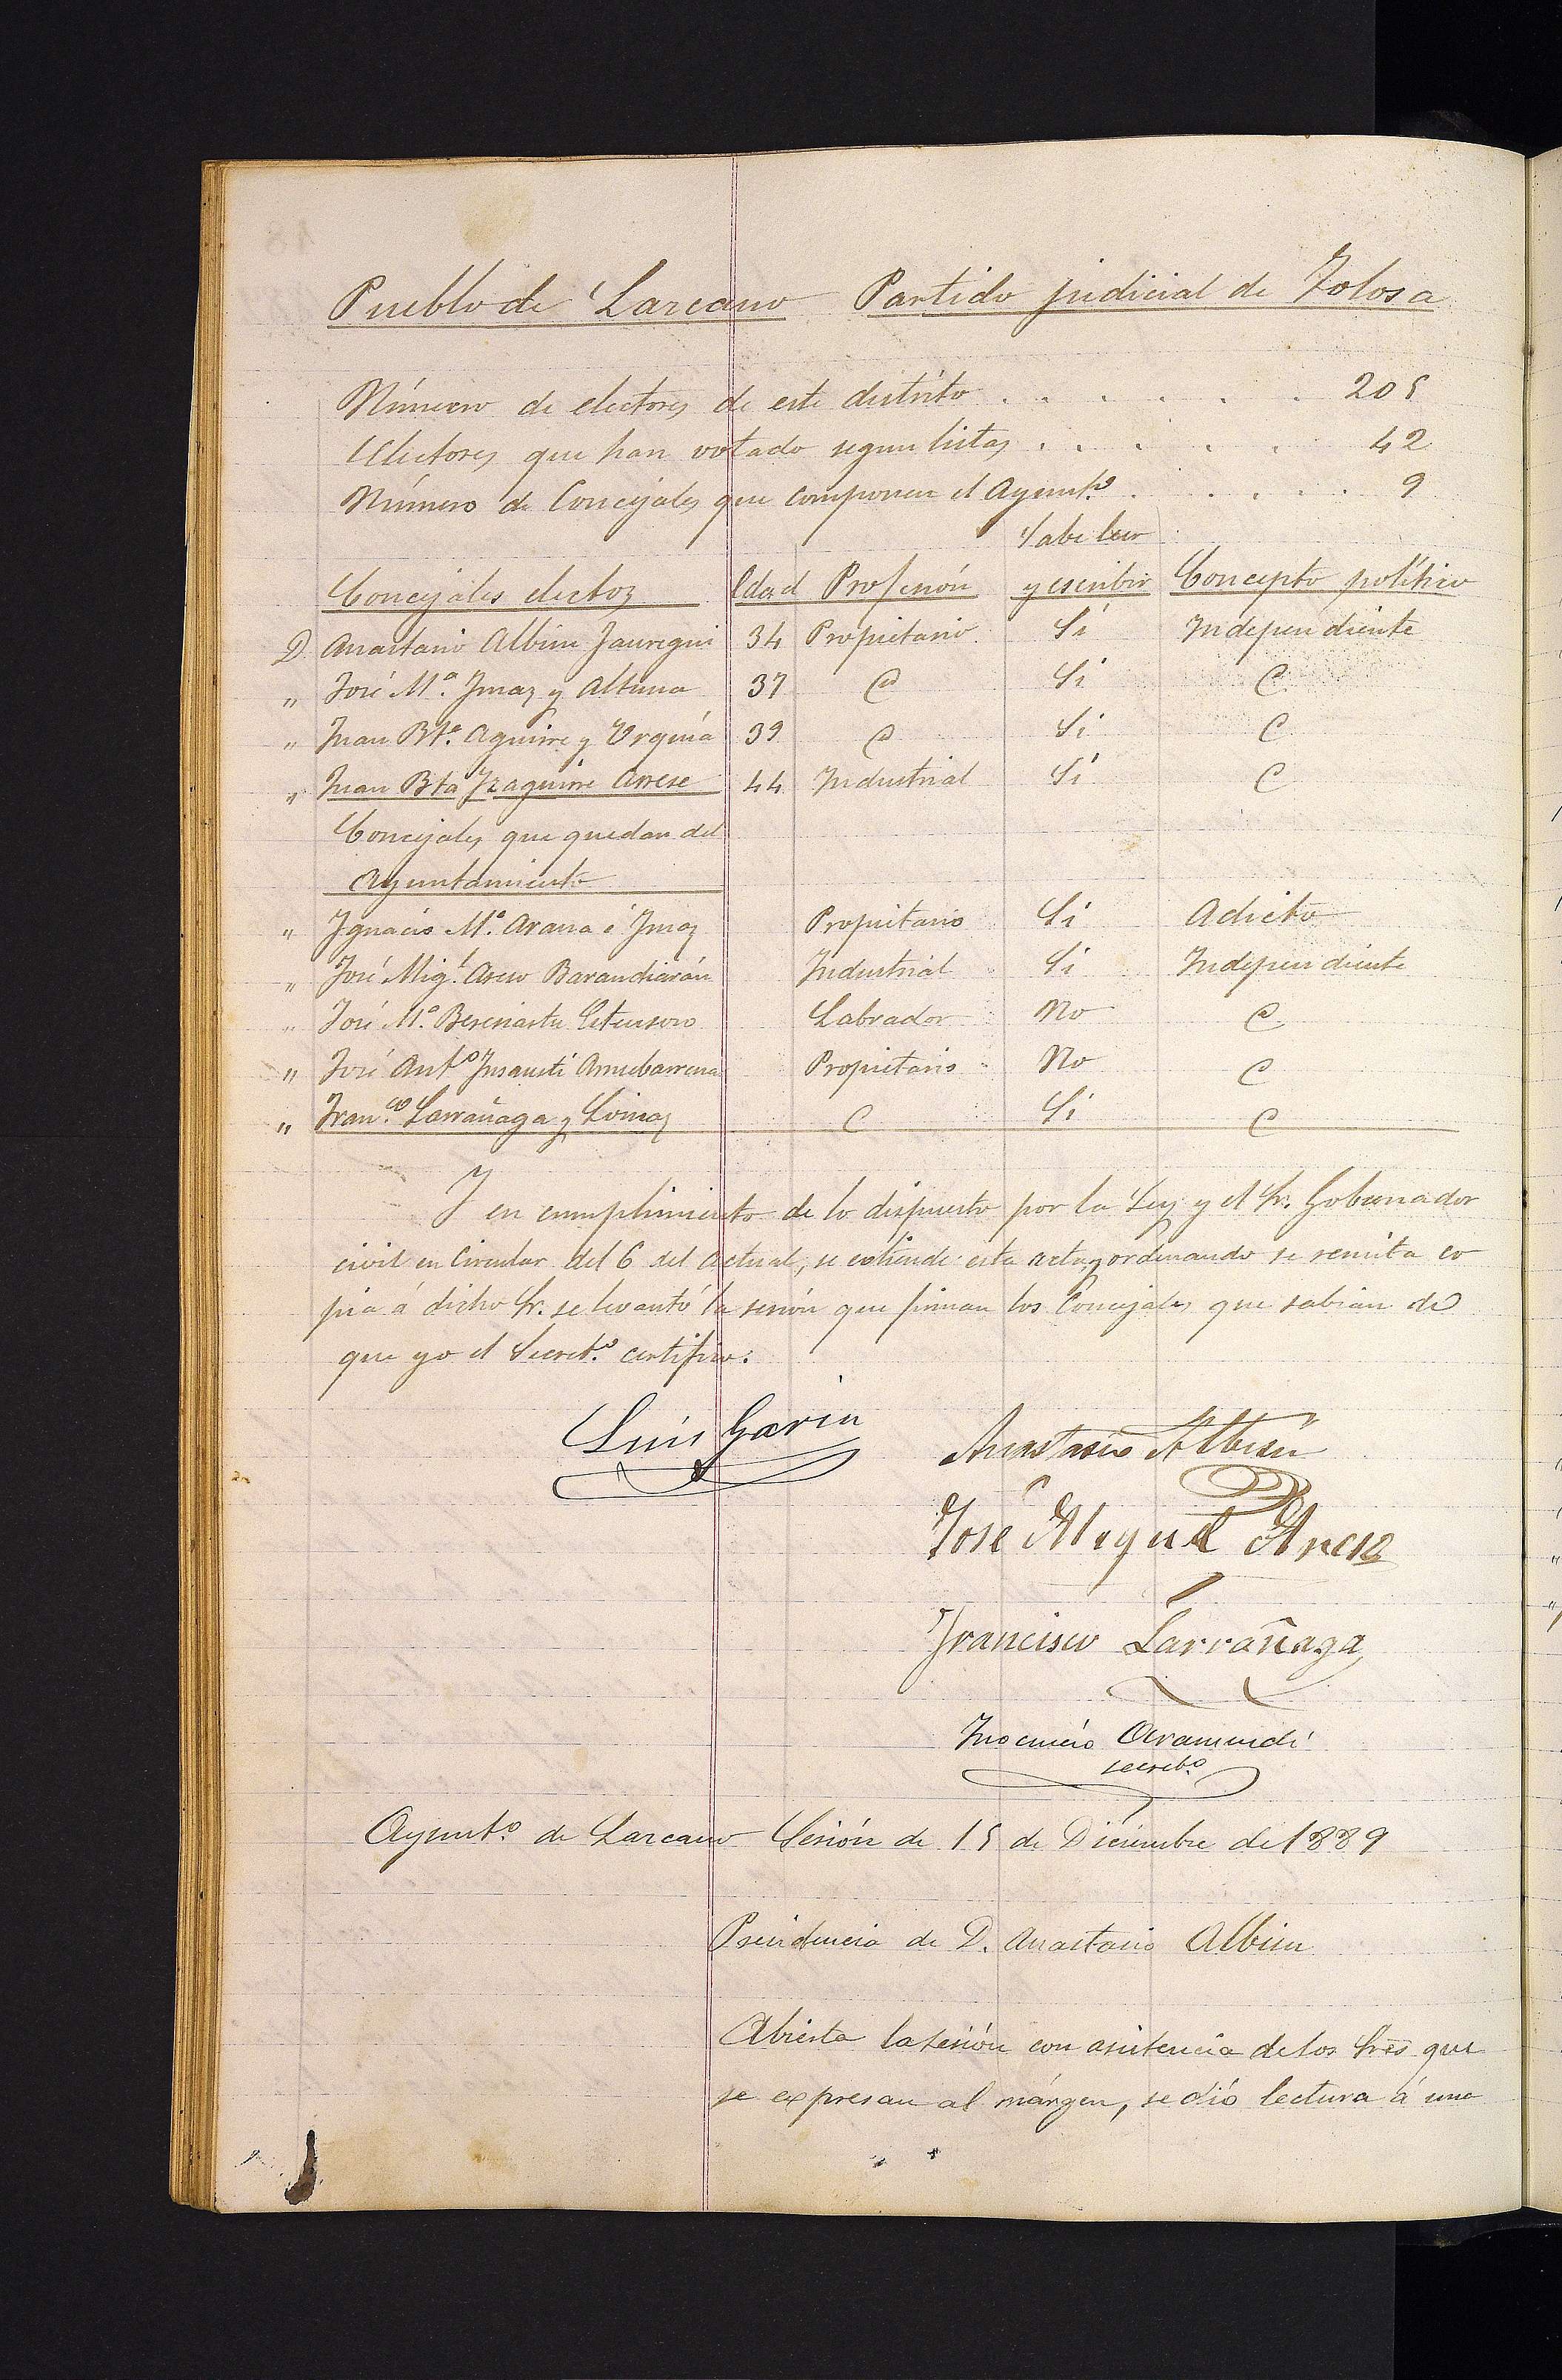 Pueblo de Larcano Partido judicial de Tolosa
Número de electores de este distrito . . . . . . 205
Electores que han votado segun listas . . . . . 42
Número de Concejales que componen el Ayuntº . . . . . 9
Sabe leer
Concejales electos Edad Profesión y escribir Concepto político
D Anastasio Albisu Jauregui 34 Propietario Si Independiente
" José Mª. Imaz y Altuna 37 @ Si @
" Juan Btª. Aguirre y Urquia 39 @ Si @
" Juan Bta Yzaguirre Arrese 44 Industrial Si @
Concejales que quedan del
Ayuntamiento
" Ignacio Mª. Arana é Imaz Propietario Si Adicto
" José Migl. Areso Barandiarán Industrial Si Independiente
" José Mª. Labrador No @
" José Antº Insausti Arruebarrena Propietario No @
" Franco. Larrañaga y Loinaz @ Si @
Y en cumplimiento de lo dispuesto por la Ley y el Sr. Gobernador
civil en Circular del 6 del actual, se extiende esta acta, y ordenando se remita co
pia á dicho Sr. se levantó la sesión que firman los Concejales que sabian de
que yo el Secretº. certifico.
Luis Garin Anastasio Albisu
José Miguel Areso
Francisco Larrañaga
Inocencio Oramendi
secretº
Ayuntº. de Larcano Sesión de 15 de Diciembre de 1889
Presidencia de D. Anastasio Albisu
Abierta la sesión con asistencia de los Sres que
se expresan al márgen, se dió lectura á una